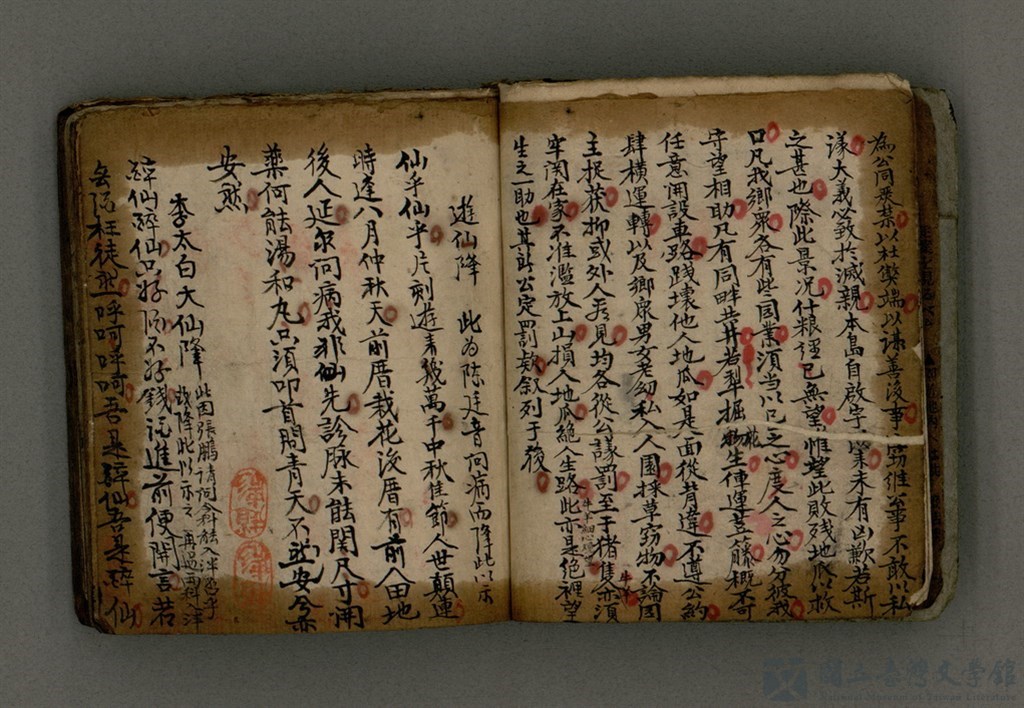 為公同嚴禁以杜獘端以謀善後事窃維筆不敢以私
議大義必致於滅親本島自啟宇業未有凶歉若斯
之甚也際此景況什粮經已無望惟望此敗残地瓜以救
口凡我鄉眾各有此同業須當以己之心度人之心勿分彼我
守望相助凡有同畔共井若犁掘花生俥運荳藤概不可
任意開設車路践壞他人地瓜如是人面從背違不遵公約
肆橫運轉以及鄉康男女老幼私入人園採草窃物不論園
主捉获抑或外人看見均各從公議罰至于猪隻亦須
牢関在家不准濫放上山損人地瓜絕人生路此亦是绝裡望
生之一助也其所公定罰款叙列于後
遊仙降 此為陈廷音问病而降此以示
仙乎仙乎片刻遊青幾萬千中秋佳節人世顛連
時逢八月仲秋天前厝栽花後厝有前人田地
後人延尔问病我非仙先診脉未能関尺寸開
藥何能湯和丸只須叩首問青天不
安然
李太白大仙降 此因張鵬请问今科能入泮否乎
故降此以示之 再過两科入泮
醉仙醉仙只好酒不好錢 進前便開言若
呼呵呼呵吾是醉仙吾是醉仙
國立臺灣文學館
National Museum of Taiwan Literature